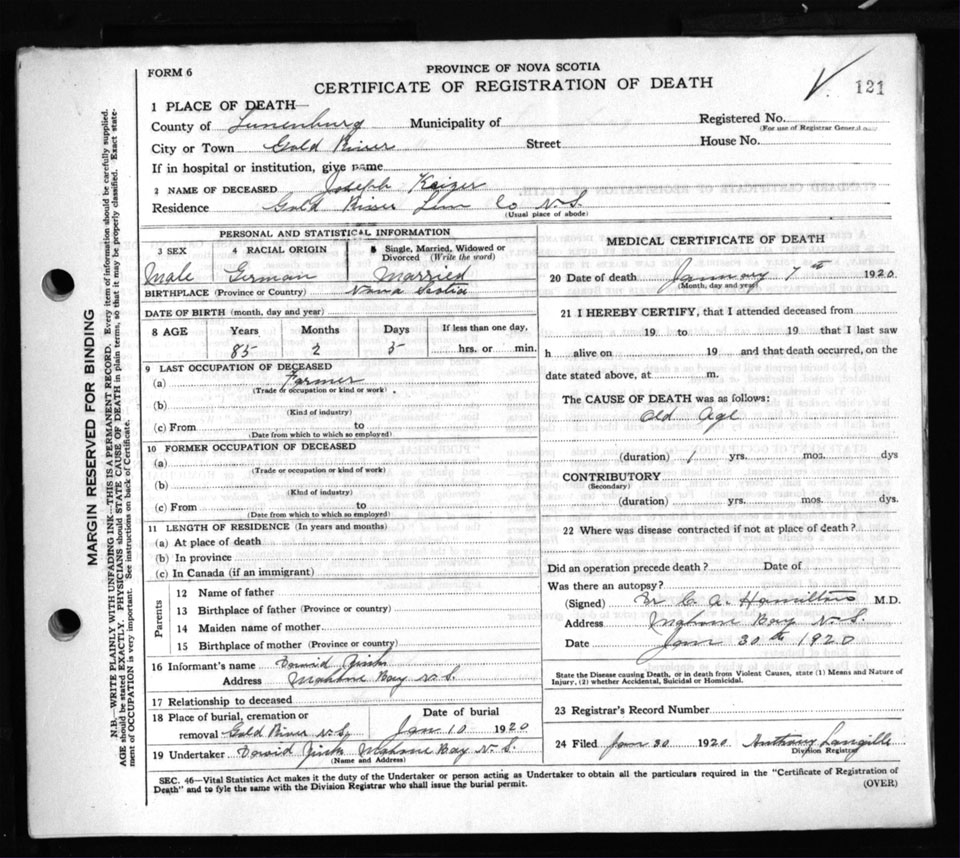 FORM 6
PROVINCE OF NOVA SCOTIA
CERTIFICATE OF REGISTRATION OF DEATH
121
1 PLACE OF DEATH—
County of Lunenburg Municipality of Registered No.
(For use of Registrar General only)
City or Town Gold River Street House No.
If in hospital or institution, give name
2 NAME OF DECEASED Joseph Keizer
Residence Gold River Lun Co N.S.
(Usual place of abode)
PERSONAL AND STATISTICAL INFORMATION
3 SEX 4 RACIAL ORIGIN 5 Single, Married, Widowed or Divorced (Write the word)
Male German Married
BIRTHPLACE (Province or Country) Nova Scotia
DATE OF BIRTH (month, day and year)
8 AGE Years Months Days If less than one day,
85 2 5 hrs. or min.
9 LAST OCCUPATION OF DECEASED
(a) Farmer
(Trade or occupation or kind or work)
(b)
(Kind of industry)
(c) From to
(Date from which to which so employed)
10 FORMER OCCUPATION OF DECEASED
(a)
(Trade or occupation or kind of work)
(b)
(Kind of industry)
(c) From to
(Date from which to which so employed)
11 LENGTH OF RESIDENCE (In years and months)
(a) At place of death
(b) In province
(c) In Canada (if an immigrant)
Parents
12 Name of father
13 Birthplace of father (Province or country)
14 Maiden name of mother
15 Birthplace of mother (Province or country)
16 Informant's name David
Address Mahone Bay N.S.
17 Relationship to deceased
18 Place of burial, cremation or removal Gold River N.S. Date of burial Jan 10 1920
19 Undertaker David Mahone Bay N.S.
(Name and Address)
MEDICAL CERTIFICATE OF DEATH
20 Date of death January 7th 1920
(Month, day and year)
21 I HEREBY CERTIFY, that I attended deceased from
19 to 19 that I last saw
h alive on 19 and that death occurred, on the
date stated above, at m.
The CAUSE OF DEATH was as follows:
Old Age
(duration) 1 yrs. mos. dys
CONTRIBUTORY
(Secondary)
(duration) yrs. mos. dys.
22 Where was disease contracted if not at place of death?
Did an operation precede death? Date of
Was there an autopsy?
(Signed) Dr C. A. Hamilton M.D.
Address Mahone Bay N.S.
Date Jan 30th 1920
State the Disease causing Death, or in death from Violent Causes, state (1) Means and Nature of
Injury, (2) whether Accidental, Suicidal or Homicidal.
23 Registrar's Record Number
24 Filed Jan 30 1920 Anthony Langille
Division Registrar
SEC. 46—Vital Statistics Act makes it the duty of the Undertaker or person acting as Undertaker to obtain all the particulars required in the "Certificate of Registration of
Death" and to fyle the same with the Division Registrar who shall issue the burial permit.
(OVER)
MARGIN RESERVED FOR BINDING
N.B.—WRITE PLAINLY WITH UNFADING INK—THIS IS A PERMANENT RECORD. Every item of information should be carefully supplied.
AGE should be stated EXACTLY. PHYSICIANS should STATE CAUSE OF DEATH in plain terms, so that it may be properly classified. Exact state-
ment of OCCUPATION is very important. See instructions on back of Certificate.